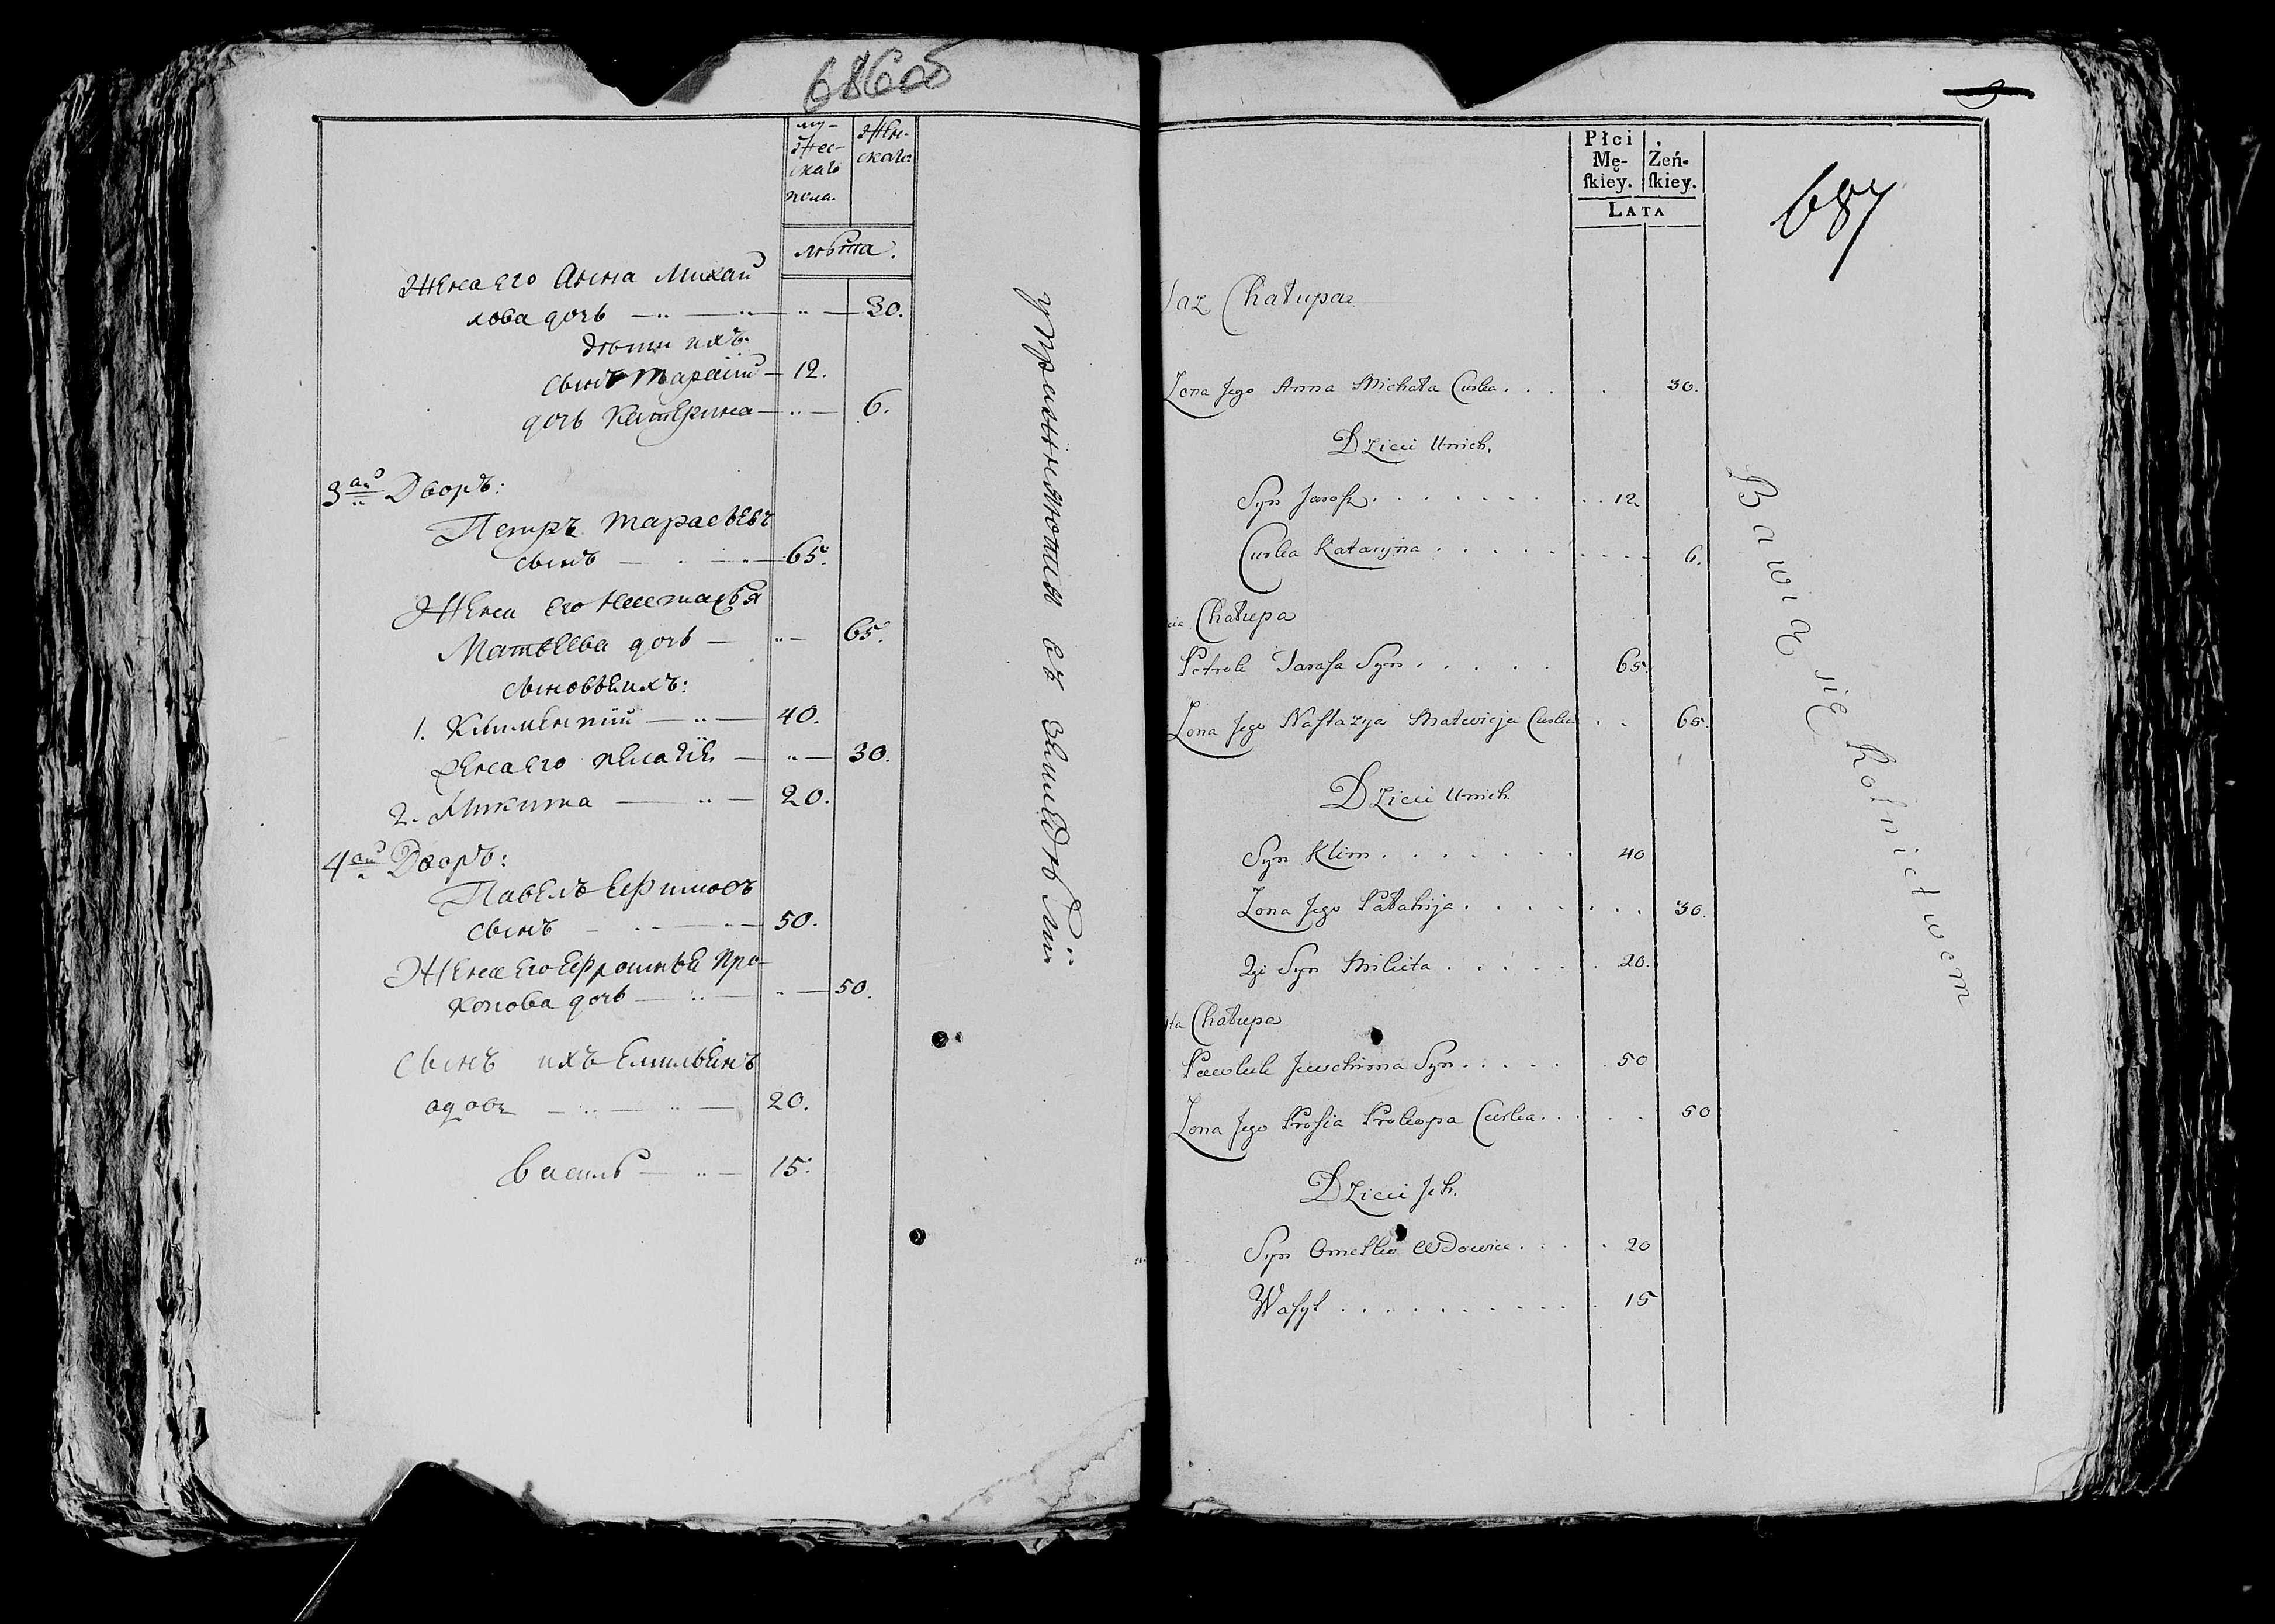 686об
му-
жес-
скаго
пола.
жен-
скаго
лѣта.
Жена его Анна Михай
лова дочь — 30.
дѣти ихъ.
сынъ Тарасiй — 12.
дочь Катерина — 6.
3ай Дворъ:
Петръ Тарасьевъ
сынъ — 65.
Жена его Настасья
Матвеева дочь — 65.
сыновья ихъ:
1. Климентiй — 40.
Жена его Пелагiя — 30.
2. Микита — 20.
4ай Дворъ:
Павелъ Ефимовъ
сынъ — 50.
Жена его Ефросинья Про-
копова дочь — 50.
сынъ ихъ Емельянъ
вдовъ — 20.
Василь — 15.
упражняются въ земледѣлiи
687
Płci
Mę-
skiey.
Żeń-
skiey.
LATA
Chałupa
Zona Jego Anna Michała Curka . . . 30.
Dzieci Unich.
Syn Jarosz . . . 12
Curka Kataryna . . . 6.
cia Chałupa
Petrok Tarasa Syn . . . 65.
Zona Jego Nastazya Matwieja Curka . . 65.
Dzieci Unich.
Syn Klim . . . 40
Zona Jego Pałahija . . . 30.
2gi Syn Mikita . . . 20.
ta Chałupa
Pawluk Jewchima Syn . . . 50
Zona Jego Prosia Prokopa Curka . . . 50
Dzieci Jch.
Syn Omelko Wdowiec . . . 20
Wasyl . . . 15
Bawią się Rolnictwem